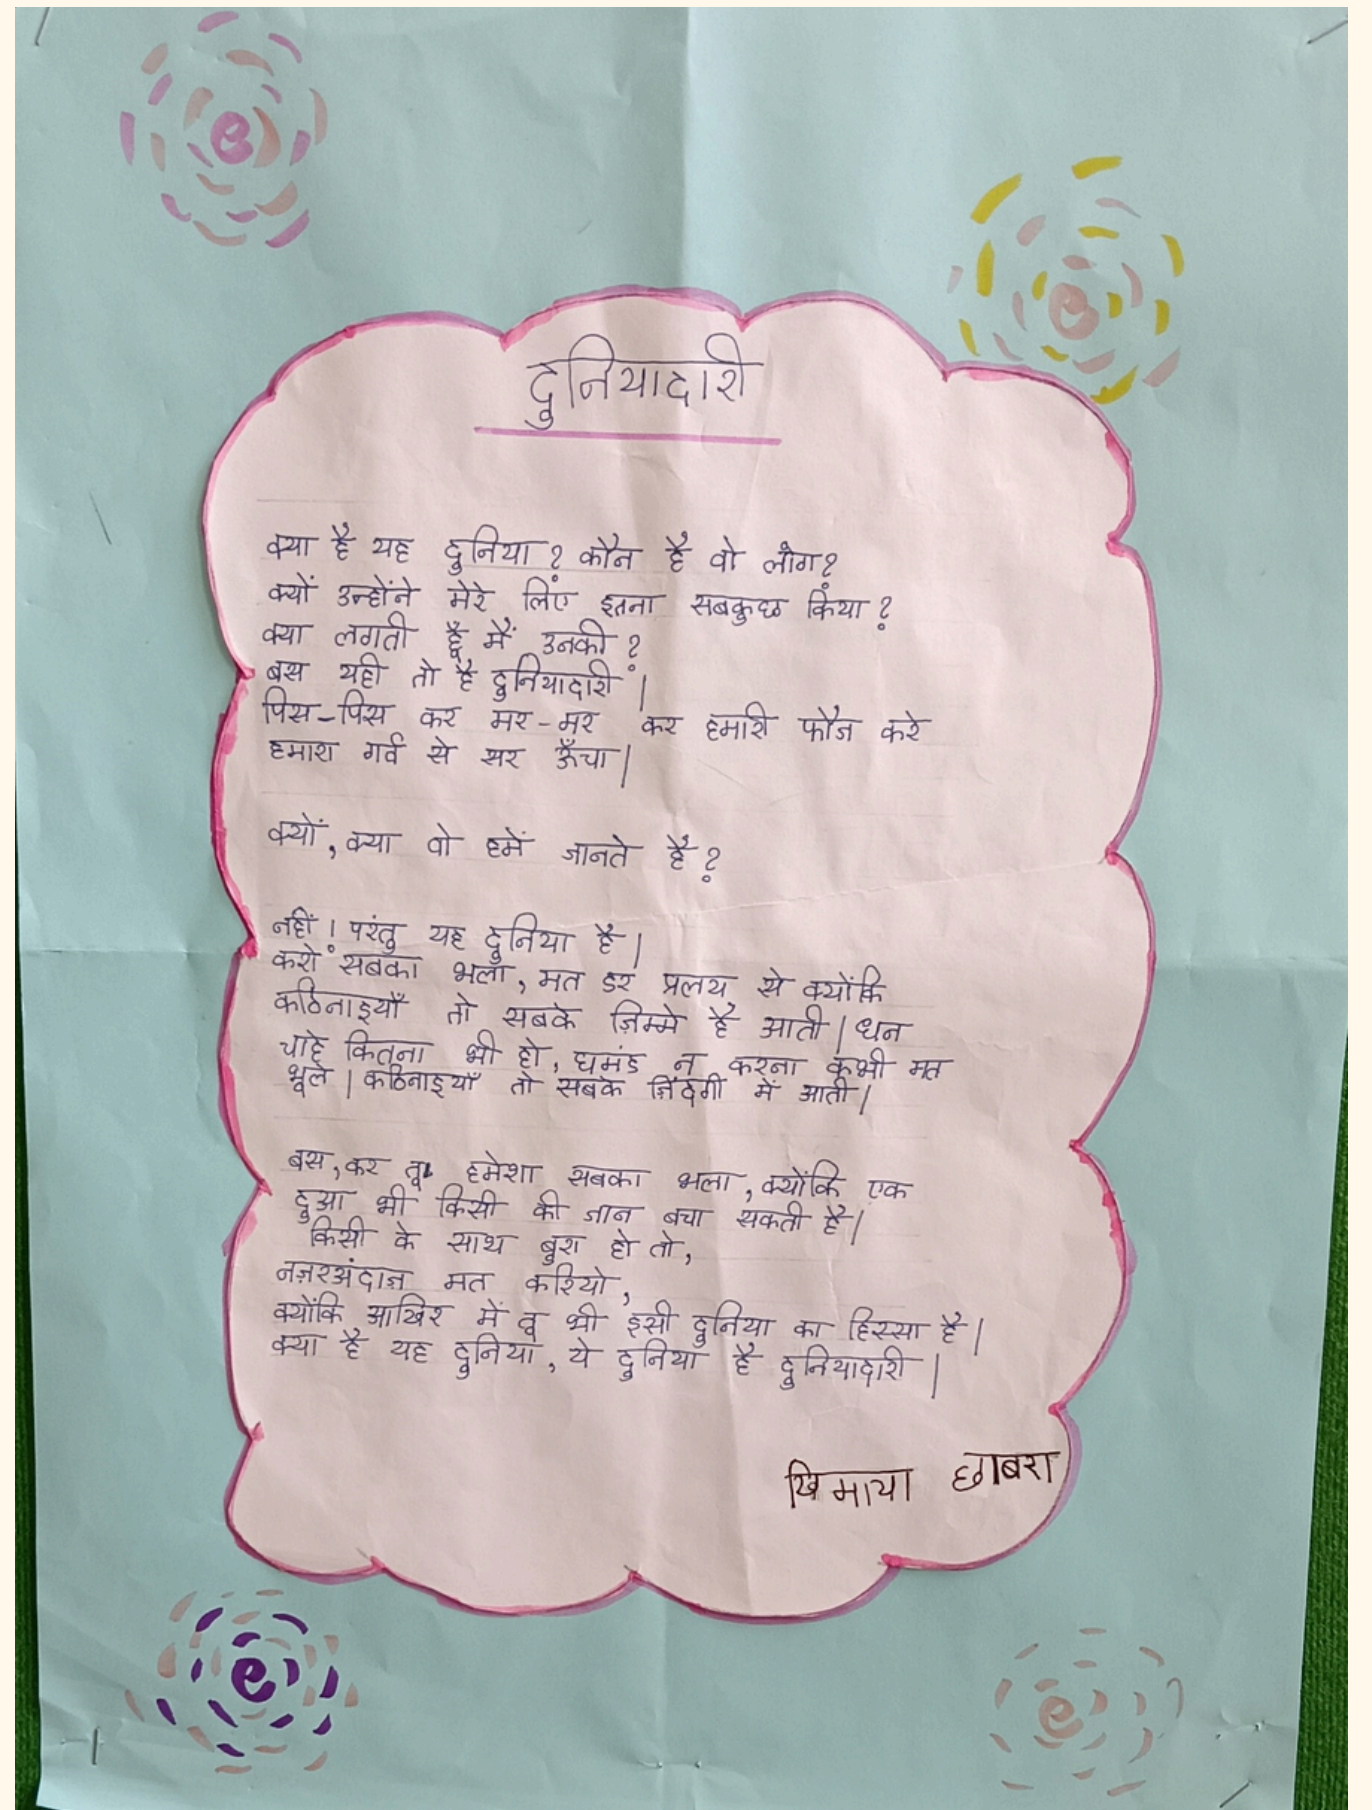 दुनियादारी
क्या है यह दुनिया? कौन है वो लोग?
क्यों उन्होंने मेरे लिए इतना सबकुछ किया?
क्या लगती हूँ मैं उनकी?
बस यही तो है दुनियादारी।
पिस-पिस कर मर-मर कर हमारी फौज करे
हमारा गर्व से सर ऊँचा।
क्यों, क्या वो हमें जानते है?
नहीं। परंतु यह दुनिया है।
करो सबका भला, मत डर प्रलय से क्योंकि
कठिनाइयाँ तो सबके ज़िम्मे है आती। धन
चाहे कितना भी हो, घमंड न करना कभी मत
भूल। कठिनाइयाँ तो सबके ज़िंदगी में आती।
बस, कर तू हमेशा सबका भला, क्योंकि एक
दुआ भी किसी की जान बचा सकती है।
किसी के साथ बुरा हो तो,
नज़रअंदाज़ मत करियो,
क्योंकि आखिर में तू भी इसी दुनिया का हिस्सा है।
क्या है यह दुनिया, ये दुनिया है दुनियादारी।
खिमाया छाबरा